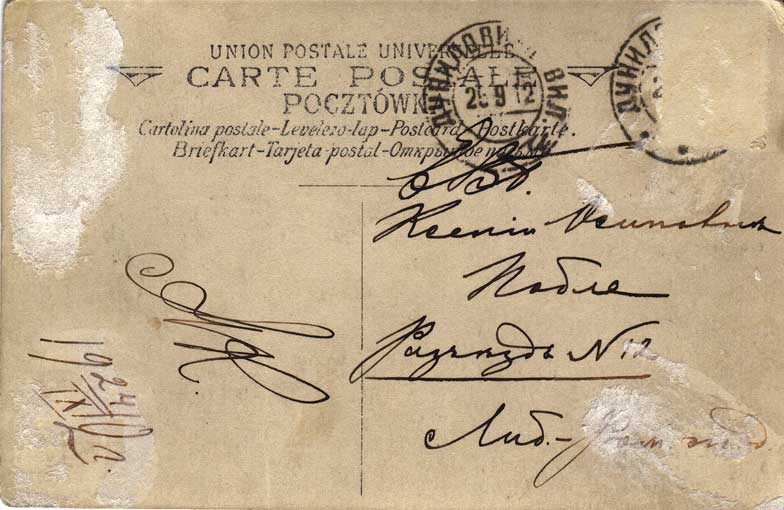 UNION POSTALE UNIVERSELLE
CARTE POSTALE
POCZTÓWKA
Cartolina postale-Levelezo-lap-Postcard-Postkarte.
Briefkart-Tarjeta postal-Открытое письмо
ДУНИЛОВИ ВИЛ.
25 9 12
ДУНИЛО
Ксеніи Осиповнѣ
Разъѣздъ N 12
Либ.-Ром.
19 24/IX 12 г.